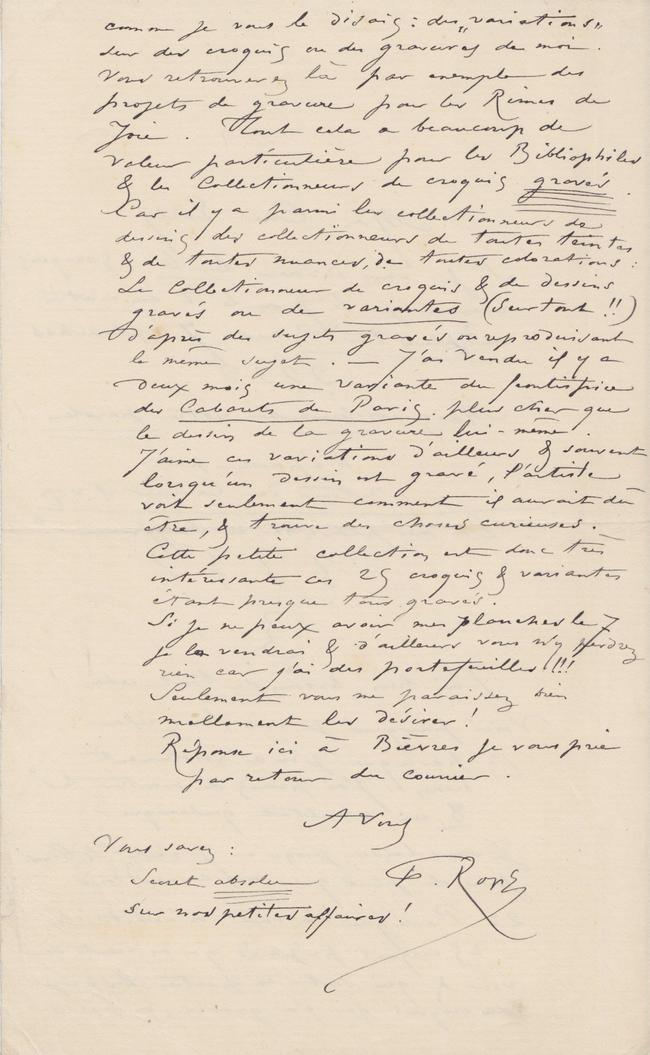 comme je vous le disais : des „variations„
sur des croquis ou des gravures de moi.
Vous retrouverez là par exemple des
projets de gravure pour les Rimes de
Joie. Tout cela a beaucoup de
valeur particulière pour les Bibliophiles
& les Collectionneurs de croquis gravés.
Car il y a parmi les collectionneurs de
dessins des collectionneurs de toutes teintes
& de toutes nuances, de toutes colorations :
Le Collectionneur de croquis & de dessins
gravés ou de variantes (surtout !!)
d'après des sujets gravés ou reproduisant
le même sujet. — J'ai vendu il y a
deux mois une variante du frontispice
des Cabarets de Paris plus cher que
le dessin de la gravure lui-même.
J'aime ces variations d'ailleurs & souvent
lorsqu'un dessin est gravé, l'artiste
voit seulement comment il aurait dû
être, & trouve des choses curieuses.
Cette petite collection est donc très
intéressante ces 25 croquis & variantes
étant presque tous gravés.
Si je ne peux avoir mes planches le 7
je la vendrai & d'ailleurs vous n'y perdrez
rien car j'ai des portefeuilles !!!
Seulement vous me paraissez bien
mollement les désirer !
Réponse ici à Bièvres je vous prie
par retour du courrier.
A Vous
Vous savez :
Secret absolu
F. Rops
sur nos petites affaires !